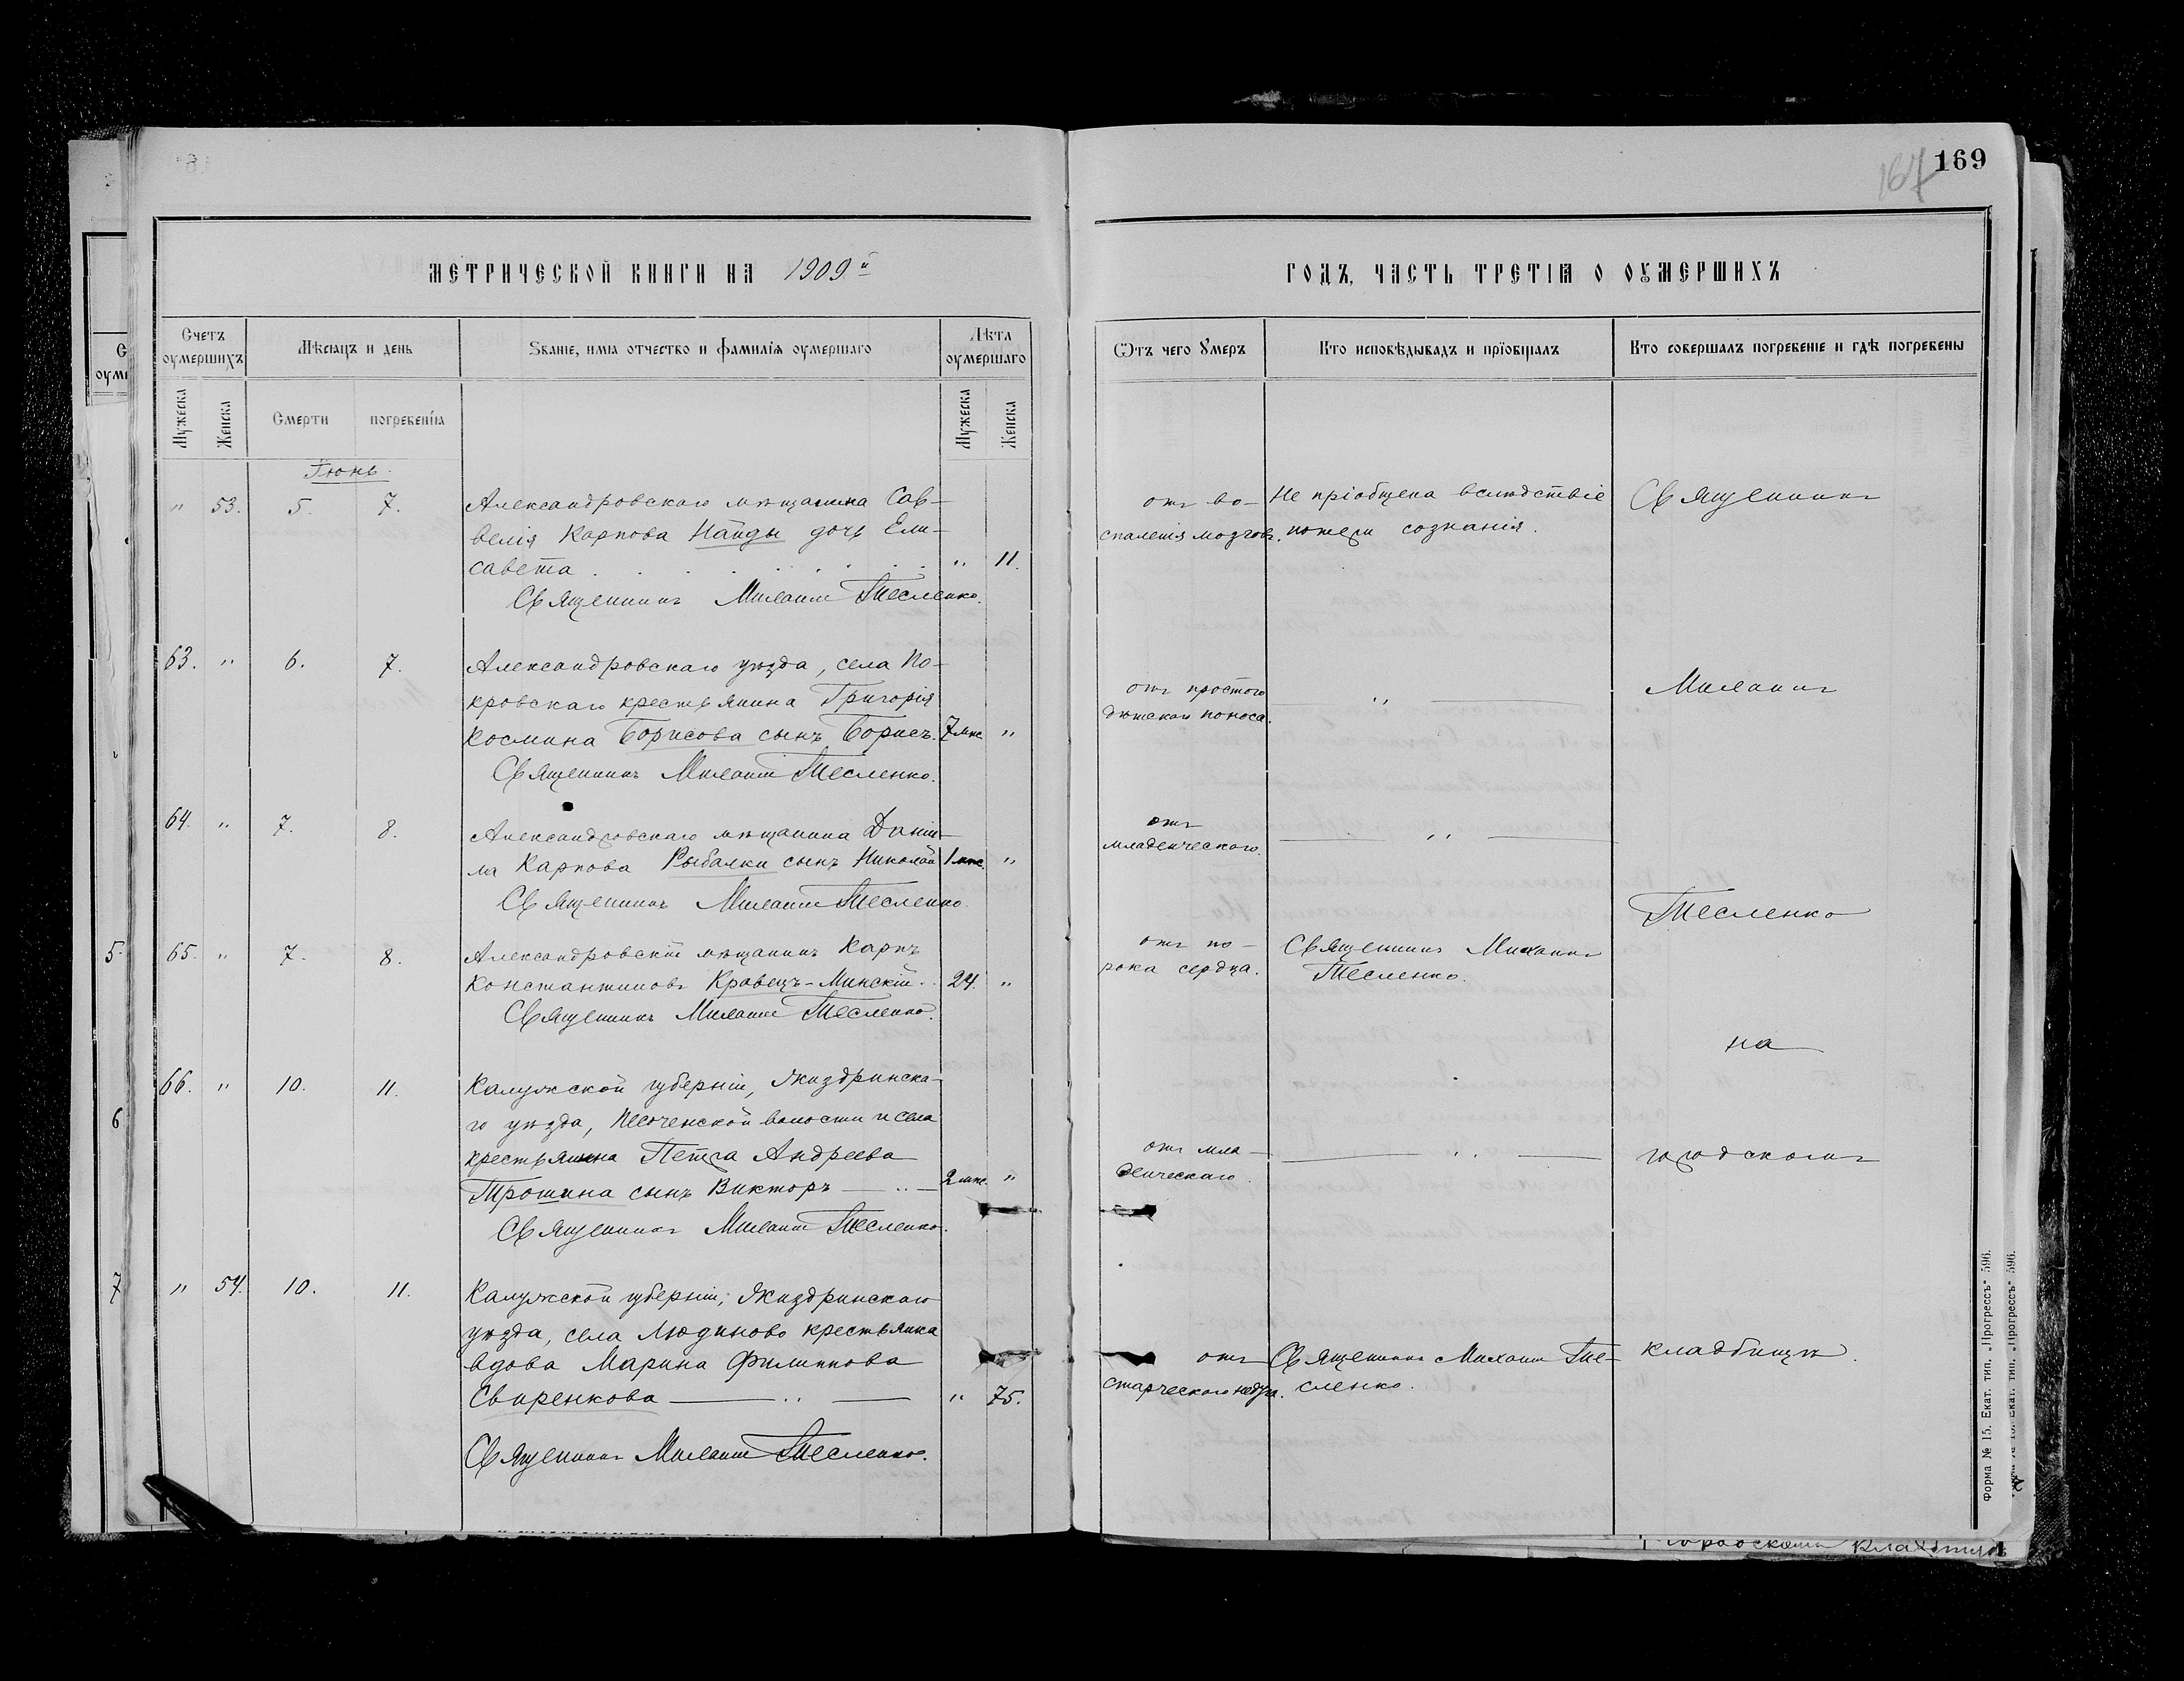 167 169
МЕТРИЧЕСКОЙ КНИГИ НА 1909й
ГОДЪ, ЧАСТЬ ТРЕТІЯ О ОУМЕРШИХЪ
Счетъ оумершихъ
Мѣсяцъ и день
Званіе, имя отчество и фамилія оумершаго
Лѣта оумершаго
Мужеска
Женска
Смерти
погребенія
Мужеска
Женска
Ѿтъ чего Умеръ
Кто исповѣдывалъ и пріобщалъ
Кто совершалъ погребеніе и гдѣ погребены
Іюнь.
" 53. 5. 7. Александровскаго мѣщанина Сав-
велія Карпова Найды дочь Ели-
савета . . . . . . . . " 11.
Священникъ Михаилъ Тесленко.
от во-
спаленія мозговъ.
Не пріобщена вслѣдствіе
потери сознанія.
Священникъ
63. " 6. 7. Александровскаго уѣзда, села По-
кровскаго крестьянина Григорія
Космина Борисова сынъ Борисъ. 7 мѣс. "
Священникъ Михаилъ Тесленко.
отъ простого
дѣтскаго поноса.
"
Михаилъ
64. " 7. 8. Александровскаго мѣщанина Даніи-
ла Карпова Рыбалки сынъ Николай 1 мѣс. "
Священникъ Михаилъ Тесленко.
отъ
младенческаго.
"
Тесленко
5
65. " 7. 8. Александровскій мѣщанинъ Карпъ
Константиновъ Кравецъ-Минскій.. 24. "
Священникъ Михаилъ Тесленко.
отъ по-
рока сердца.
Священникъ Михаилъ
Тесленко.
на
6
66. " 10. 11. Калужской губерніи, Жиздринска-
го уѣзда, Песоченской волости и села
крестьянина Петра Андреева
Трошина сынъ Викторъ — .. — 2 мѣс. "
Священникъ Михаилъ Тесленко.
отъ мла-
денческаго.
"
городскомъ
7
" 54. 10. 11. Калужской губерніи, Жиздринскаго
уѣзда, села Людиново крестьянка
вдова Марина Филиппова
Свиренкова — .. — " 75.
Священникъ Михаилъ Тесленко.
отъ
старческаго недуга.
Священникъ Михаилъ Те-
сленко.
кладбищѣ.
Форма № 15. Екат. тип. „Прогрессъ" 596.